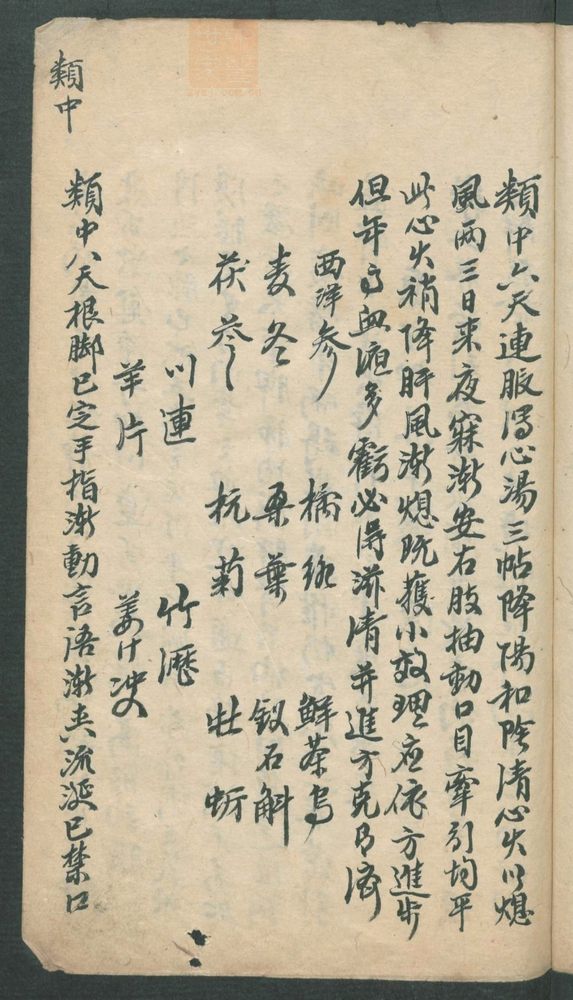 類中六天連服瀉心湯三帖降陽和陰清心火以熄
風兩三日來夜寐漸安右肢抽動口目牽引均平
此心火稍降肝風漸熄既獲小效理应依方進步
但年高血液多虧必得滋清并進方克有濟
西洋參 橘絡 鮮茶烏
麦冬 桑葉 釵石斛
茯苓 杭菊 牡蛎
川連 竹瀝
羊片 姜汁
類中
類中八天根脚已定手指漸動言语漸出流涎已禁口